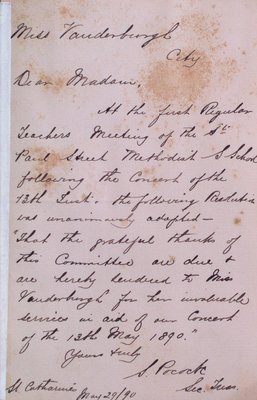 Miss Vanderburgh
City
Dear Madam,
At the first Regular
Teachers Meeting of the St
Paul Street Methodist S School
following the Concert of the
13th Inst. the following Resolution
was unanimously adopted —
"That the grateful thanks of
this Committee are due &
are hereby tendered to Miss
Vanderburgh for her invaluable
services in aid of our Concert
of the 13th May 1890."
Yours truly
S Pocock
Sec. Treas.
St Catharines May 29/90